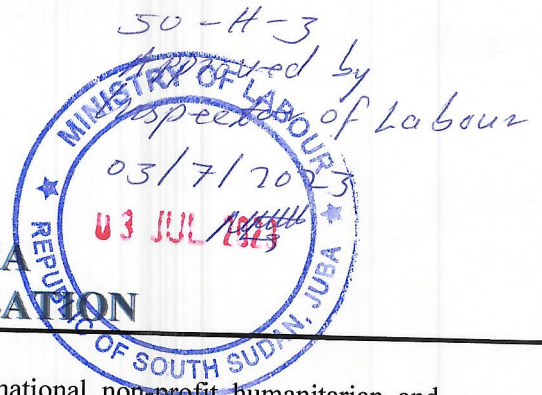 50-H-3
Approved by
Inspector of Labour
03/7/2023
MINISTRY OF LABOUR
03 JUL 2023
REPUBLIC OF SOUTH SUDAN, JUBA
A
ATION
national non-profit humanitarian and